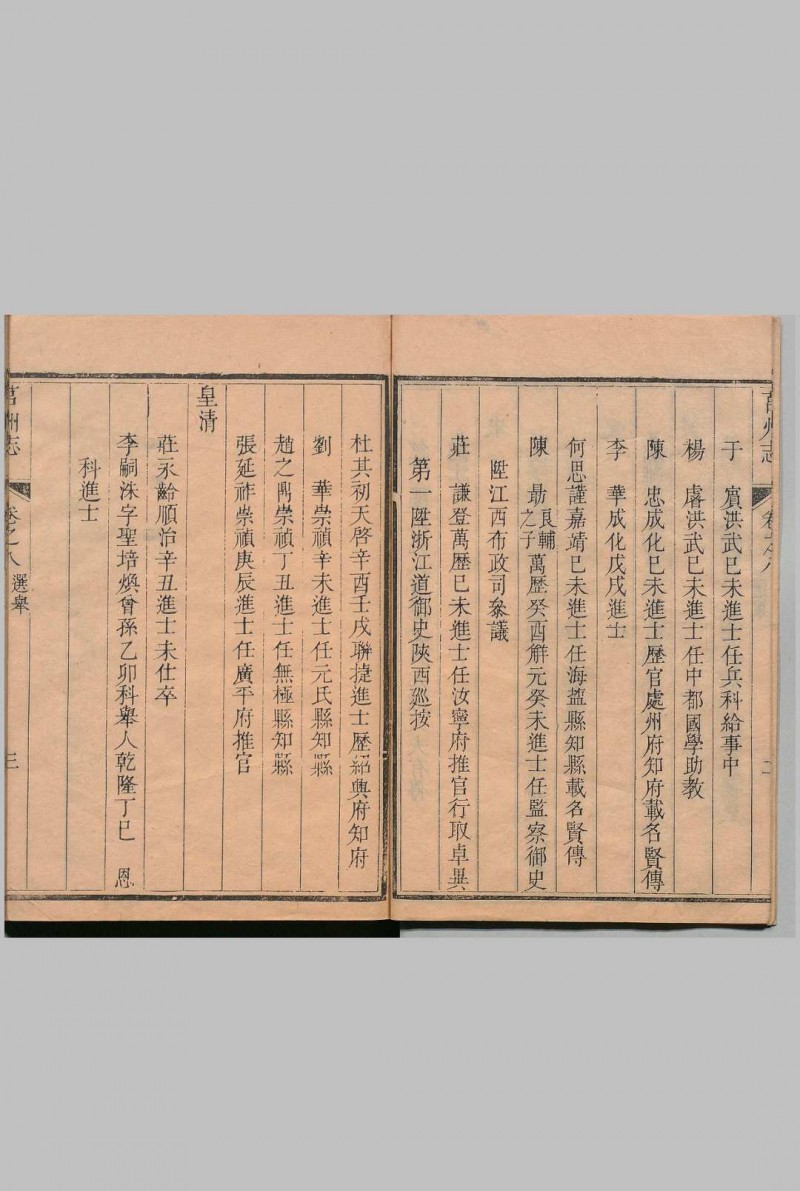 莒州志
卷之八
二
于　賔洪武巳未進士任兵科給事中
楊　睿洪武巳未進士任中都國學助教
陳　忠成化巳未進士歷官處州府知府載名賢傳
李　華成化戊戌進士
何思謹嘉靖巳未進士任海盐縣知縣載名賢傳
陳　朂良輔之子萬歷癸酉觧元癸未進士任監察御史
陞江西布政司叅議
莊　謙登萬歷巳未進士任汝寧府推官行取卓異
第一陞浙江道御史陝西廵按
杜其初天啓辛酉壬戌聯捷進士歷紹興府知府
劉　華崇禎辛未進士任元氏縣知縣
趙之鼎崇禎丁丑進士任無極縣知縣
張延祚崇禎庚辰進士任廣平府推官
皇清
莊永齡順治辛丑進士未仕卒
李嗣洙字聖培煥曾孫乙卯科舉人乾隆丁巳　恩
科進士
莒州志
卷之八　選舉
三